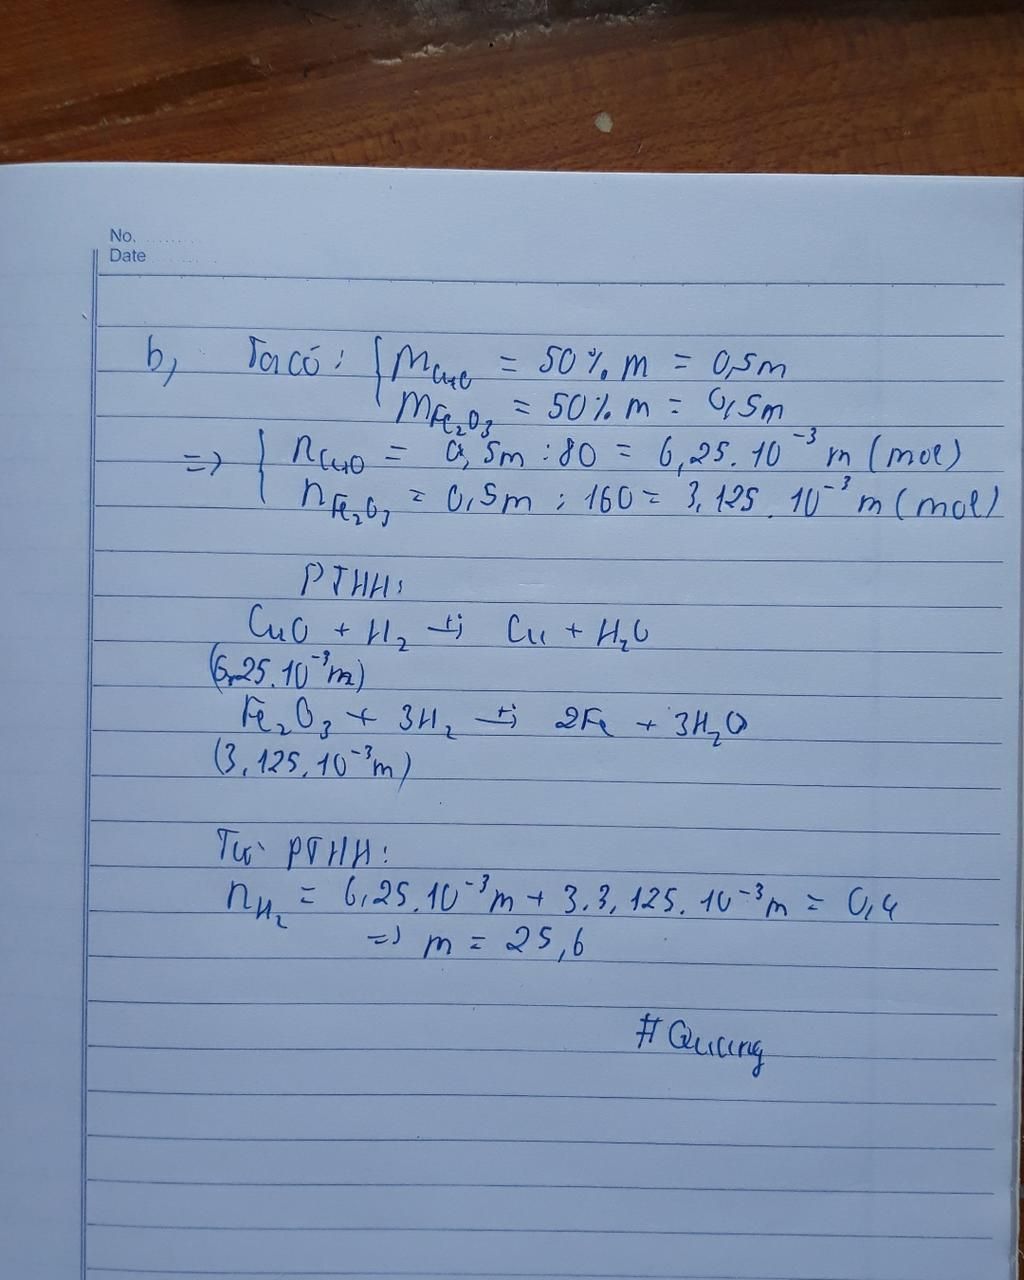 No.
Date
b, Ta có: { mCuO = 50%. m = 0,5m
mFe₂O₃ = 50% m = 0,5m
=> { nCuO = 0,5m : 80 = 6,25.10⁻³ m (mol)
nFe₂O₃ = 0,5m : 160 = 3,125.10⁻³ m (mol)
PTHH:
CuO + H₂ →(t°) Cu + H₂O
(6,25.10⁻³m)
Fe₂O₃ + 3H₂ →(t°) 2Fe + 3H₂O
(3,125.10⁻³m)
Từ PTHH:
nH₂ = 6,25.10⁻³m + 3.3,125.10⁻³m = 0,4
=> m = 25,6
#Quang